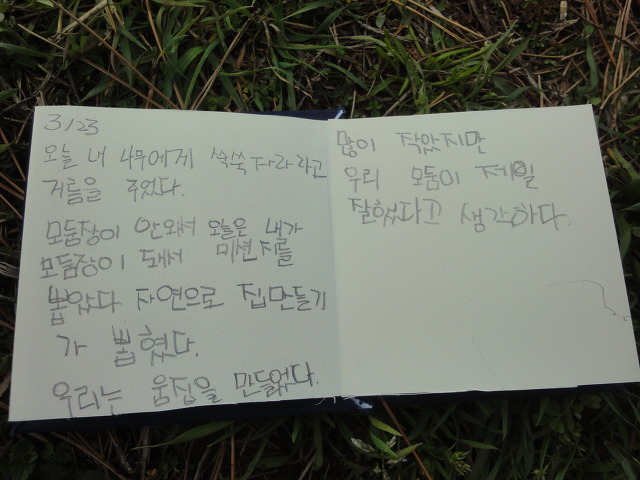 3/23
오늘 내 나무에게 쑥쑥 자라라고
거름을 주었다.
모둠장이 안와서 오늘은 내가
모둠장이 돼서 미션지를
뽑았다 자연으로 집만들기
가 뽑혔다.
우리는 움집을 만들었다.
많이 작았지만
우리 모둠이 제일
잘했다고 생각하다.